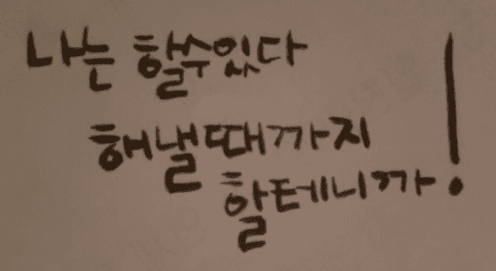 나는 할수있다
해낼때까지
할테니까!